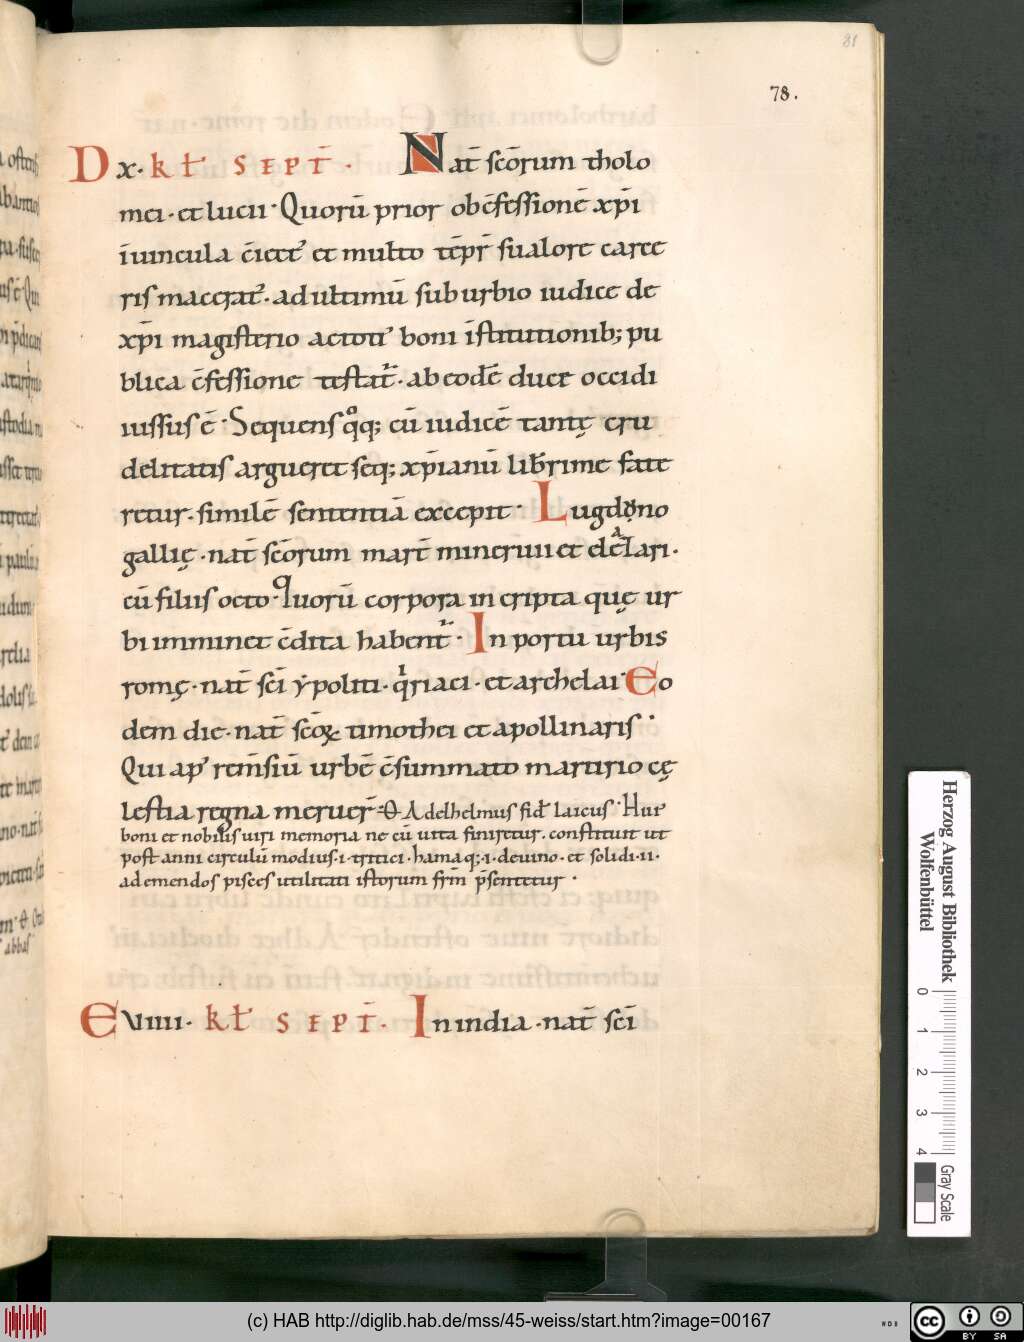 81
78.
D x. kł. SEPT̄. Nat̄ sc̄orum tholo
mei. et lucii. Quorū prior ob c̄fessionē xp̄i
ī uincula c̄iect᾽ et multo tēpr̄ sualore carce
ris macerat᾽. ad ultimū sub urbio iudice de
xp̄i magisterio ac toti᾽ boni īstitutionib; pu
blica c̄fessione testat᷑. ab eodē duce occidi
iussus ē. Sequens qͦq; cū iudicē tantę cru
delitatis argueret seq; xp̄ianū liberrime fate
retur. similē sententiā excepit. Lugdono
gallię. nat̄ sc̄orum mart̄ minerui et eleᷓzari.
cū filiis octo. Quorū corpora in cripta quę ur
bi imminet c̄dita habent᷑. In portu urbis
romę. nat̄ sc̄i ypoliti. qͥriaci. et archelai. Eo
dem die. nat̄ sc̄oꝝ timothei et apollinaris.
Qui ap᾽ rem̄siū urbē c̄summato martirio cę
lestia regna meruer̄. Ꝋ Adelhelmus fid̄ laicus. Hui᾽
boni et nobilis uiri memoria ne cū uita finiretur. constituit ut
post anni circulū modius .i. tritici. hama q; .i. de uino. et solidi .ii.
ad emendos pisces utilitati istorum frm̄ p̄sentetur.
E VIIII. kł. SEPT̄. In india. nat̄ sc̄i
Herzog August Bibliothek
Wolfenbüttel
0 1 2 3 4
Gray Scale
(c) HAB http://diglib.hab.de/mss/45-weiss/start.htm?image=00167
WDB
cc BY SA